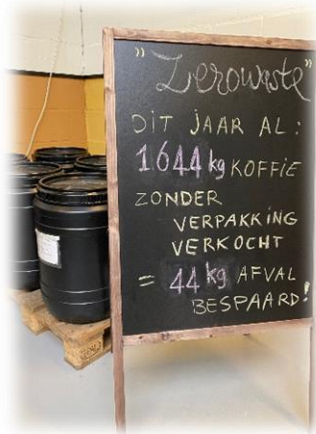 "Zerowaste"
DIT JAAR AL:
1644 kg KOFFIE
ZONDER
VERPAKKING
VERKOCHT
= 44 kg AFVAL
BESPAARD!